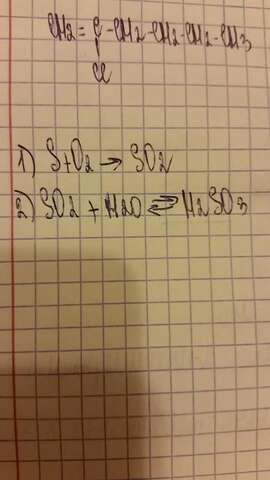 CH2 = C - CH2 - CH2 - CH2 - CH3
Cl
1) S + O2 → SO2
2) SO2 + H2O ⇌ H2SO3